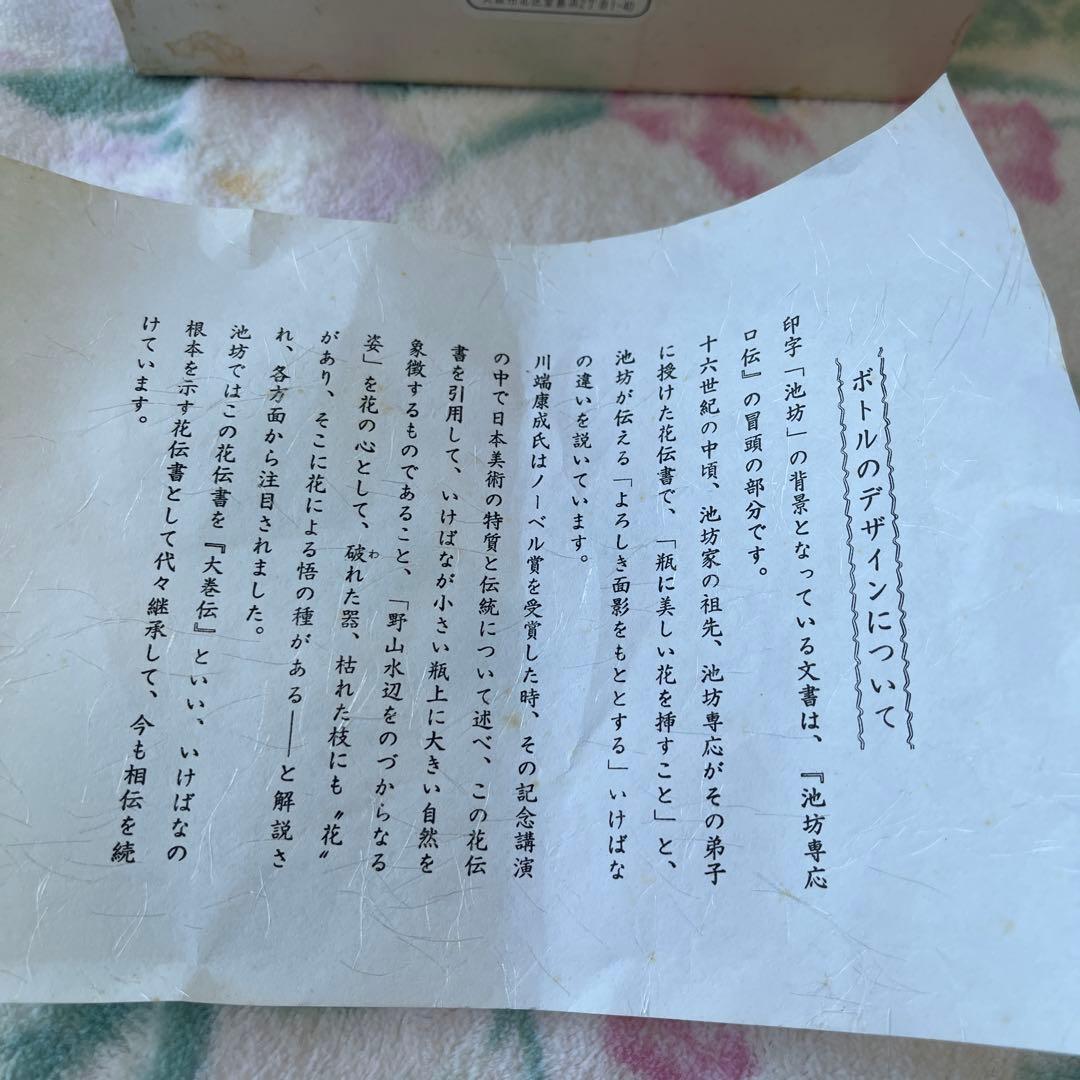 ボトルのデザインについて
印字「池坊」の背景となっている文書は、『池坊専応
口伝』の冒頭の部分です。
十六世紀の中頃、池坊家の祖先、池坊専応がその弟子
に授けた花伝書で、「瓶に美しい花を挿すこと」と、
池坊が伝える「よろしき面影をもととする」いけばな
の違いを説いています。
川端康成氏はノーベル賞を受賞した時、その記念講演
の中で日本美術の特質と伝統について述べ、この花伝
書を引用して、いけばなが小さい瓶上に大きい自然を
象徴するものであること、「野山水辺をのづからなる
姿」を花の心として、破れた器、枯れた枝にも〝花〟
わ
があり、そこに花による悟の種がある――と解説さ
れ、各方面から注目されました。
池坊ではこの花伝書を『大巻伝』といい、いけばなの
根本を示す花伝書として代々継承して、今も相伝を続
けています。